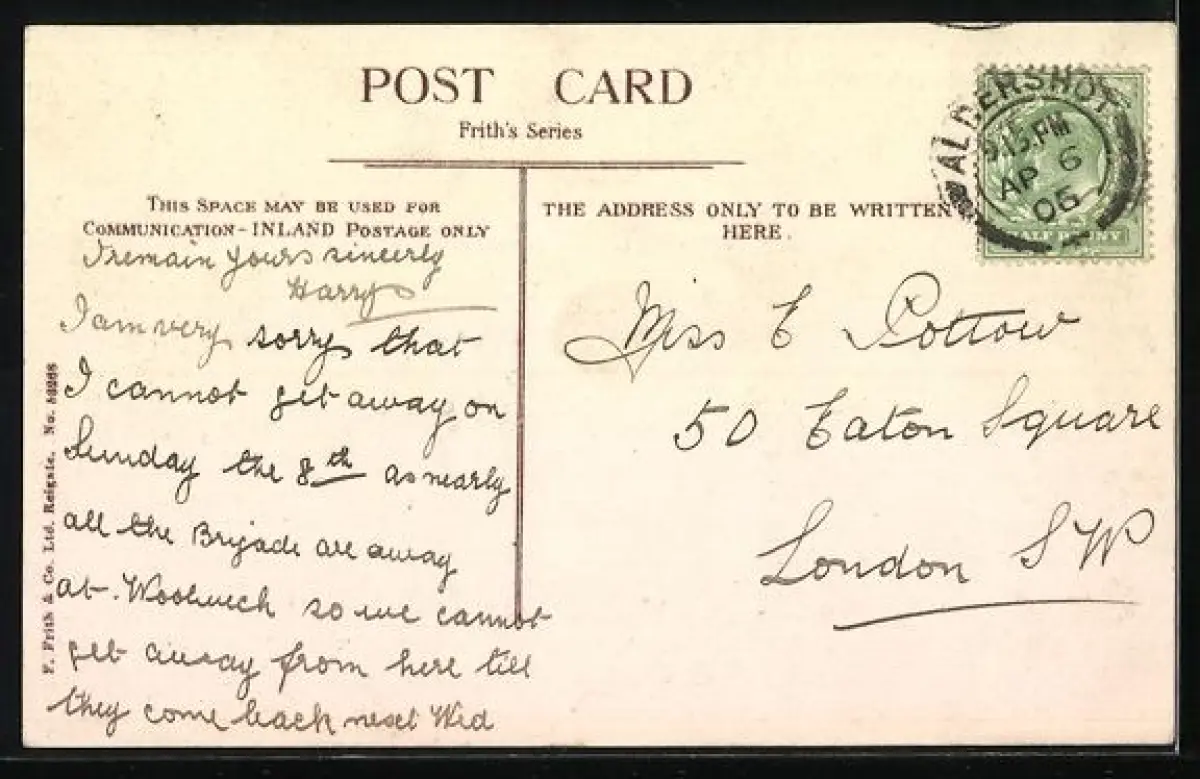 POST CARD
Frith's Series
THIS SPACE MAY BE USED FOR
COMMUNICATION - INLAND POSTAGE ONLY
I remain yours sincerly
Harry
I am very sorry that
I cannot get away on
Sunday the 8th as nearly
all the Brigade are away
at Woolwech so we cannot
get away from here till
they come back next Wed
F. Frith & Co. Ltd. Reigate. No.
THE ADDRESS ONLY TO BE WRITTEN
HERE.
Miss E Pottow
50 Eaton Square
London S W
ALDERSHOT
PM
AP 6
06
HALF PENNY